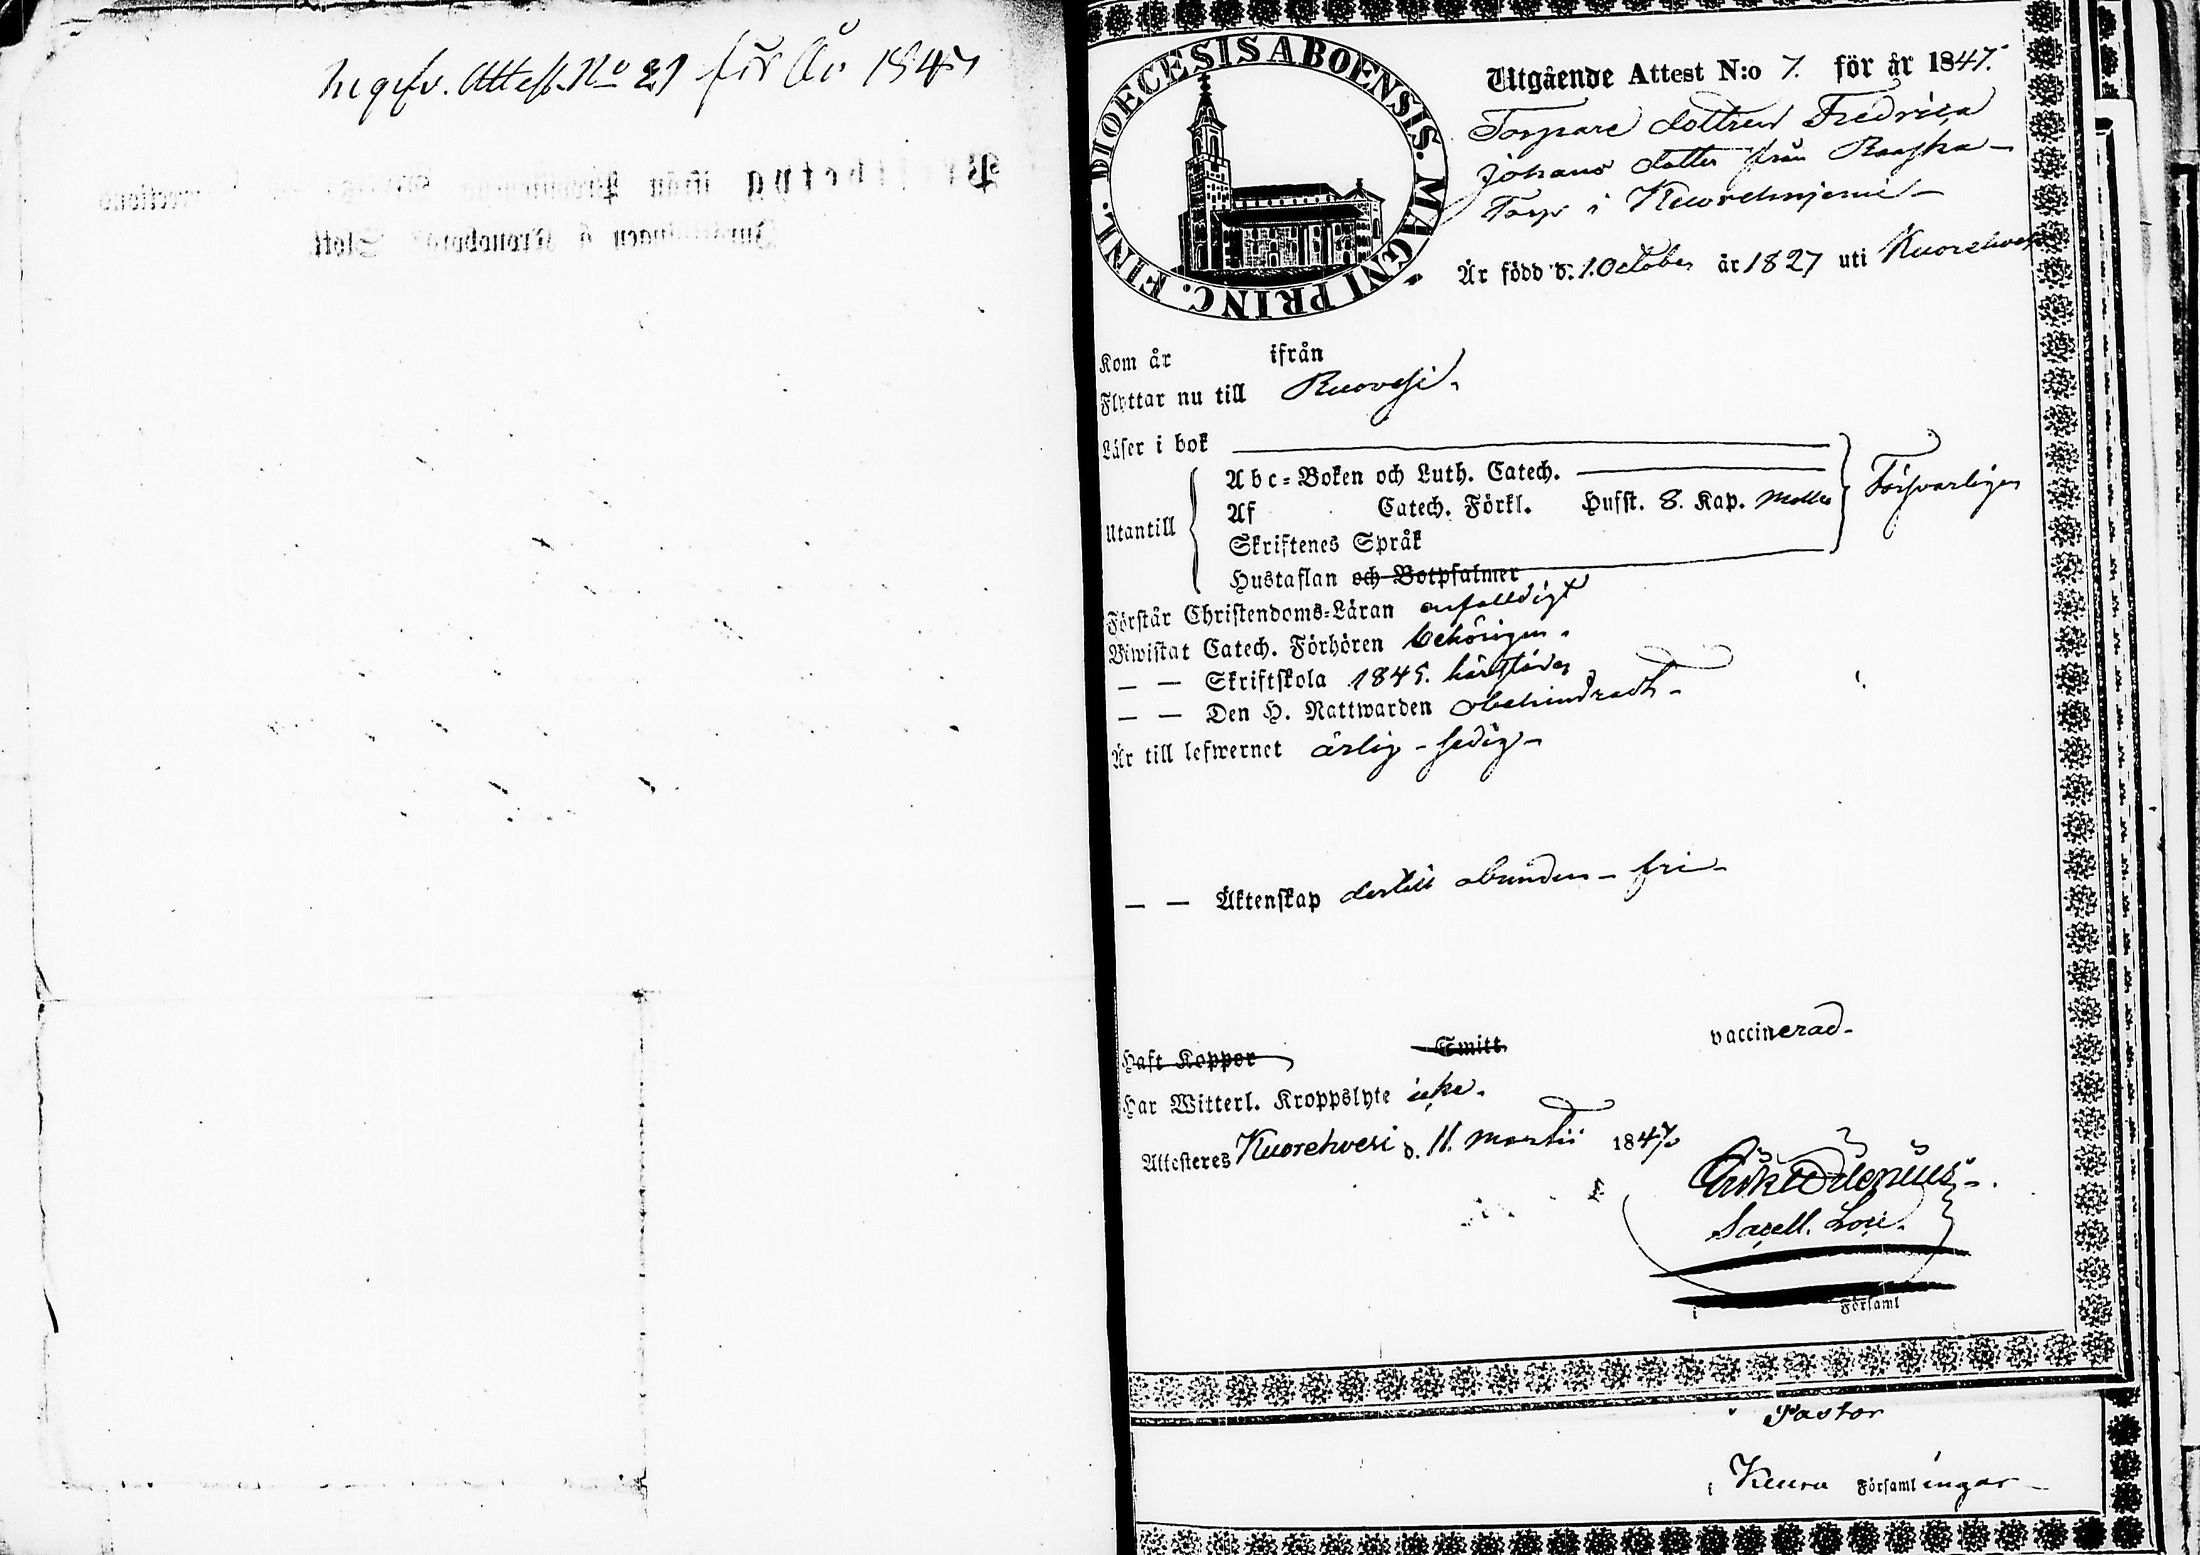 Ingifv. Attest. No 21 för År 1847
DIOECESIS ABOENSIS. MAGNI PRINC. FINL.
Utgående Attest N:o 7. för år 1847.
Torpare dottren Fredrica
Johans dotter från Raaska
Torp i
Är född d. 1. October år 1827 uti Kuorehvesi
Kom år ifrån
Flyttar nu till Ruovesi.
Läser i bok
Abc-Boken och Luth. Catech.
Utantill Af Catech. Förkl. Hufst. 8. Kap. mellan Försvarligen
Skriftenes Språk
Hustaflan och Botpsalmer
Förstår Christendoms-Läran enfalldigt
Biwistat Catech. Förhören behörigen.
— — Skriftskola 1845. härstädes
— — Den H. Nattwarden obehindradt
Är till lefwernet ärlig - sedig -
— — Äktenskap dertill obunden - fri -
Haft Koppor Smitt vaccinerad.
Har Witterl. Kroppslyte icke.
Attesteres Kuorehvesi d. 11. Martii 1847.
Sacell. Loci.
i Församl
Pastor
i Keuru Församlingar